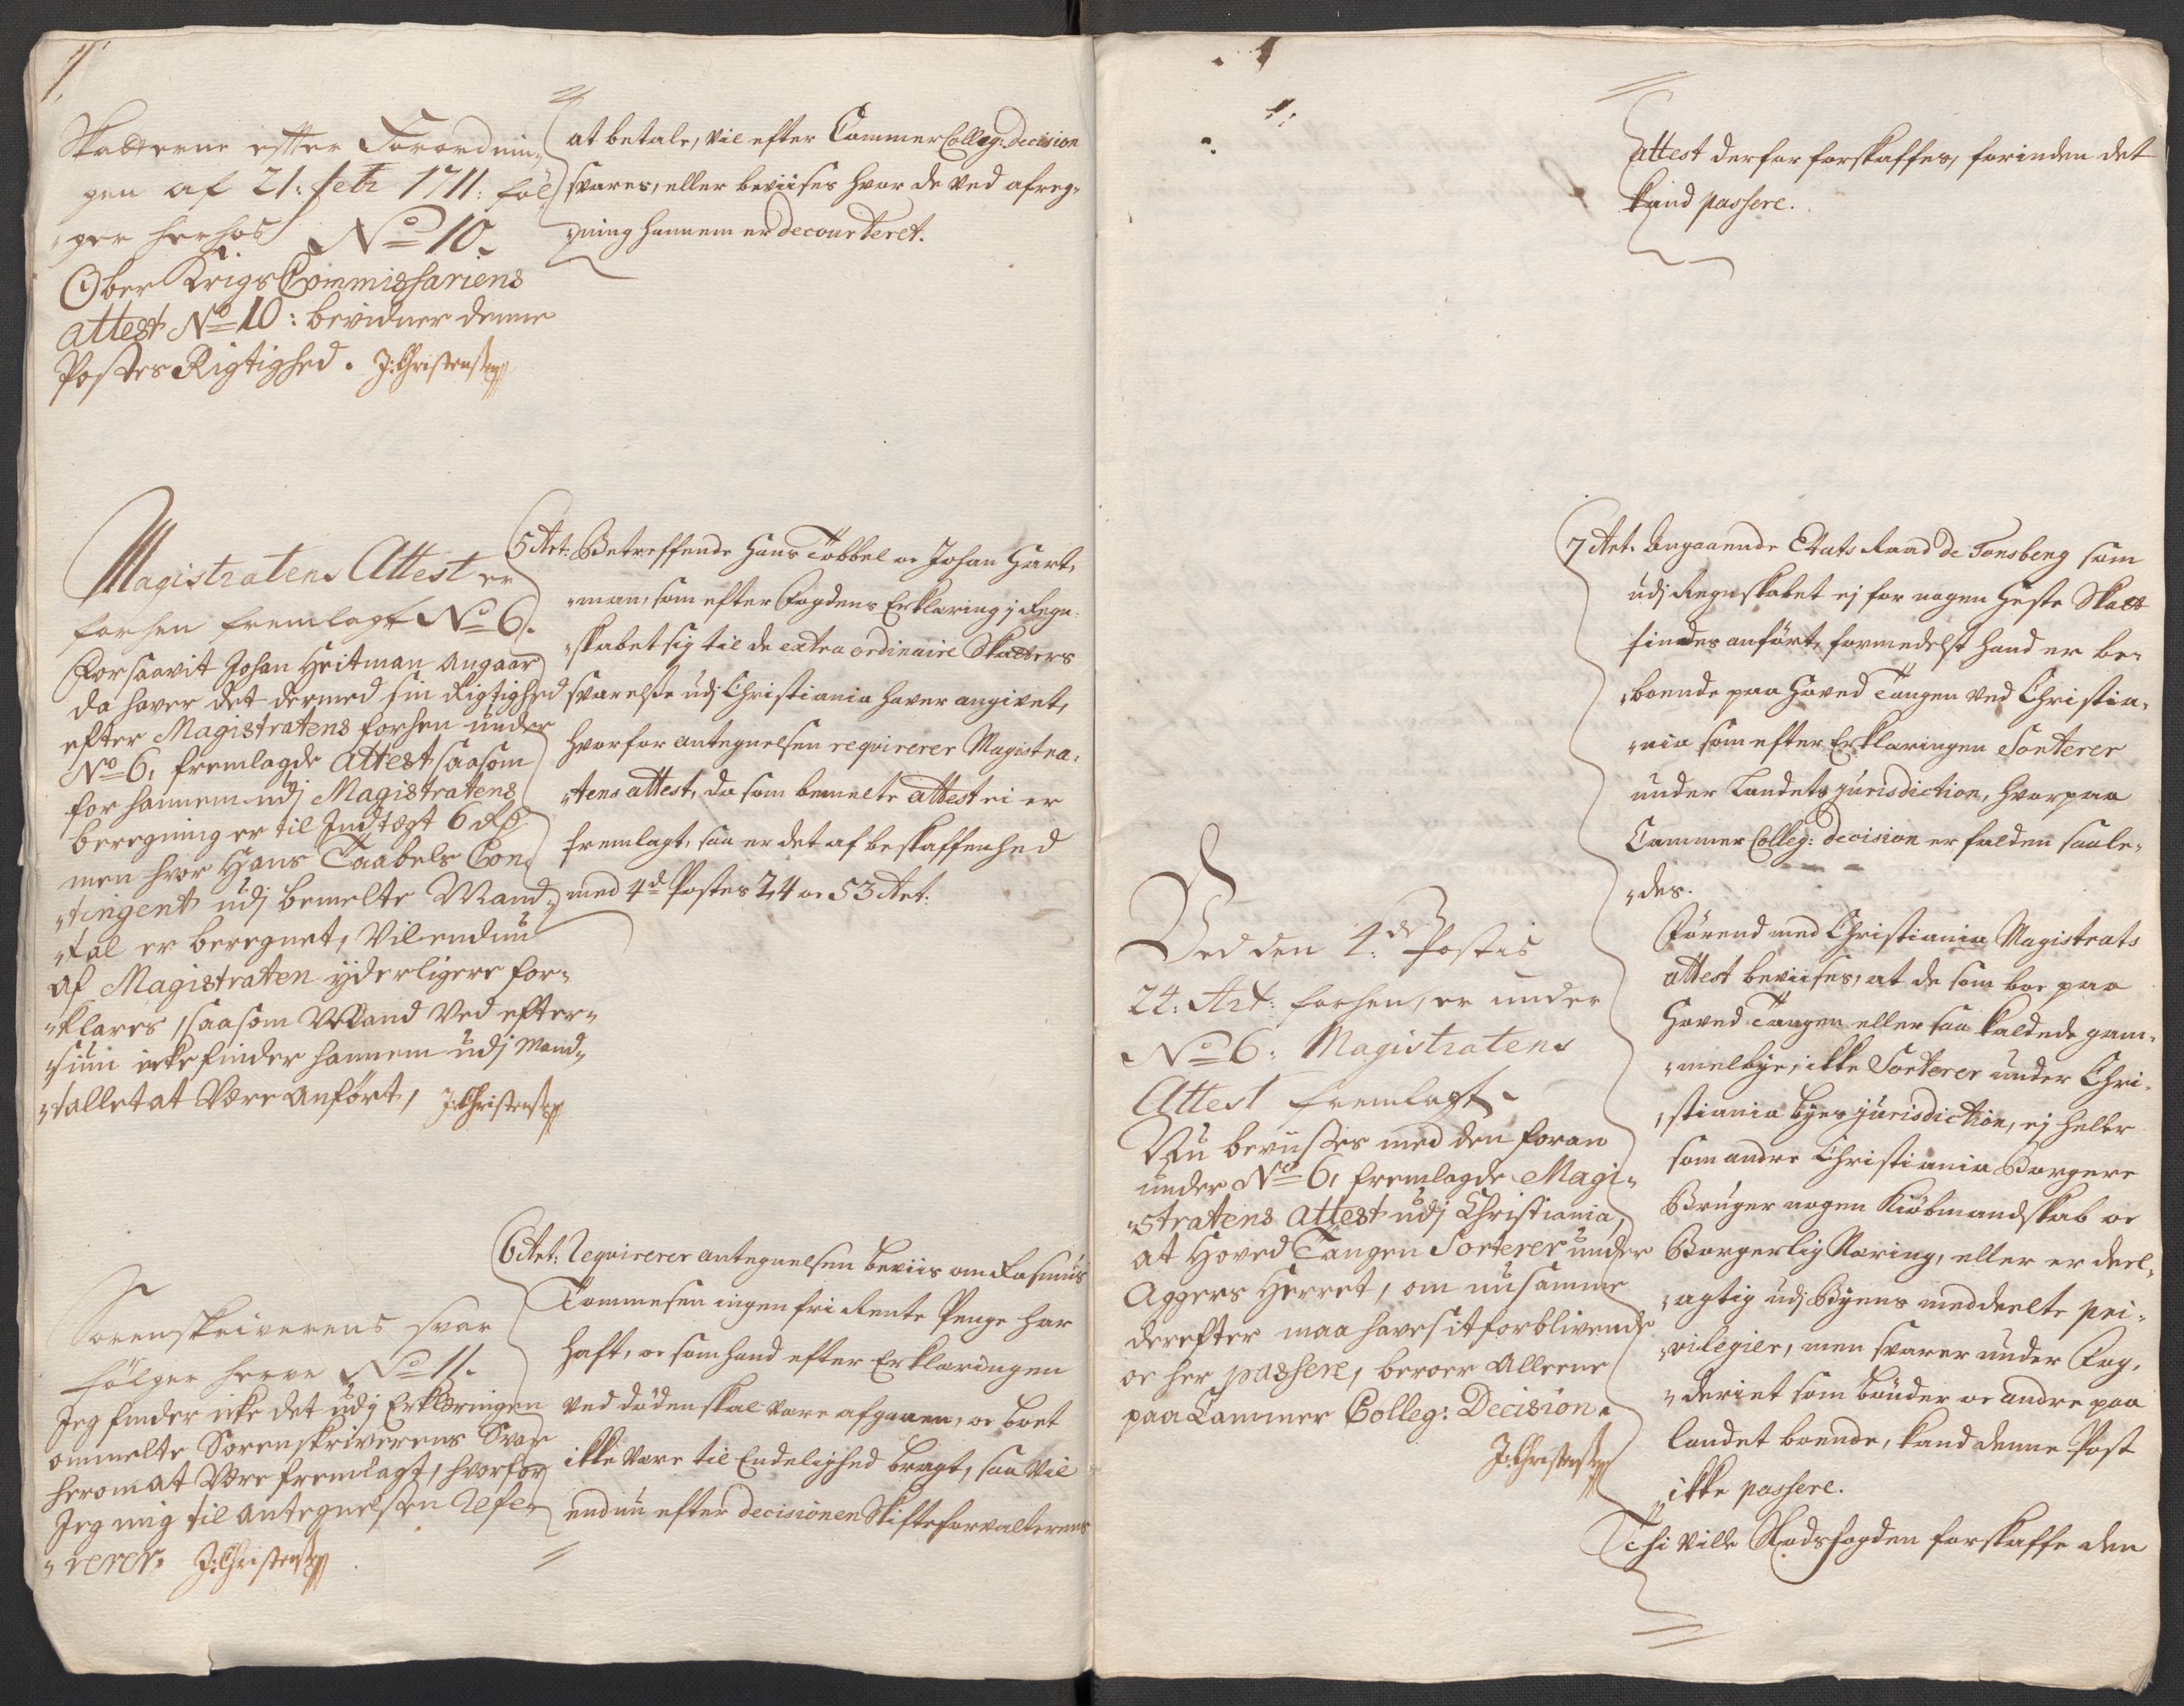 Skatterne efter Forordnin-
gen af 21: febr 1711: föl
ger herhos No 10.
Ober Krigs Commissariens
attest No 10: bevidner denne
Postes Rigtighed. J: Christensen
at betale, vil efter Cammer Colleg: decision
svares, eller beviises hvor de ved afreg-
ning hannem er decourteret.
Magistratens Attest er
forhen fremlagt No 6.
For saavit Johan Heitman angaar
da haver det dermed sin Rigtighed
efter Magistratens forhen under
No 6, fremlagde attest saasom
for hannem udj Magistratens
beregning er til Indtægt 6 Rd
men hvor Hans Taabels Con-
tingent udj bemelte Mand-
tal er beregnet, Vil endnu
af Magistraten ÿderligere for-
klares, saasom Mand Ved efter-
siun icke finder hannem udj Mand-
tallet at Være anfört, J: Christensen
5 Art: Betreffende Hans Tobbel oc Johan Hart-
man, som efter Fogdens Erklaring j Regn-
skabet sig til de extra ordinaire Skatters
svarelse udj Christiania haver angivet,
hvorfor antegnelsen requirerer Magistra-
tens attest, da som bemelte attest ei er
fremlagt, saa er det af beskaffenhed
med 4de Postes 24 oc 53 Art:
Sorenskriverens svar
fölger herve No 11.
Jeg finder icke det udj Erkleringen
ommelte Sorenskriverens Svar
herom at Være fremlagt, hvorfor
Jeg mig til antegnelsen Refe-
rerer. J: Christensen
6 Art: Requirerer antegnelsen beviis om Rasmus
Tommesen ingen fri Rente Penge har
haft, oc som hand efter Erklaringen
ved döden skal vare afgaaen, oc boet
ikke vare til Endelighed bragt, saa vil
endnu efter decisionen Skifteforvalterens
attest derfor forskaffes, forinden det
kand passere.
Ved den 4de Postis
24: Art: forhen, er under
No 6: Magistratens
Attest fremlagt.
Nu beviises med den foran
under No 6, fremlagde Magi-
stratens attest udj Christiania,
at Hoved Tangen Sorterer under
Aggers Herret, om nu samme
derefter maa haves it forblivende
oc her passere, beroer alleene
paa Cammer Colleg: Decision.
J: Christensen
7 Art. Angaaende Etats Raad de Tonsberg som
udj Regnskabet ej for nogen Heste Skatt
findes anfört, formedelst hand er be-
boende paa Hoved Tangen ved Christia-
nia som efter Erklaringen Sorterer
under Landets jurisdiction, hvorpaa
Cammer Colleg: decision er falden saale-
des.
Förend med Christiania Magistrats
attest beviises, at de som boe paa
Hoved Tangen eller saa kaldede gam-
melbye, ikke Sorterer under Chri-
stiania byes jurisdiction, ej heller
som andre Christiania Borgere
Bruger nogen Kiöbmandskab oc
Borgerlig Naring, eller er deel-
agtig udj Byens meddeelte pri-
vilegier, men svarer under Fog-
deriet som bönder oc andre paa
landet boende, kand denne Post
ikke passere.
Thi ville Stadsfogden forskaffe den